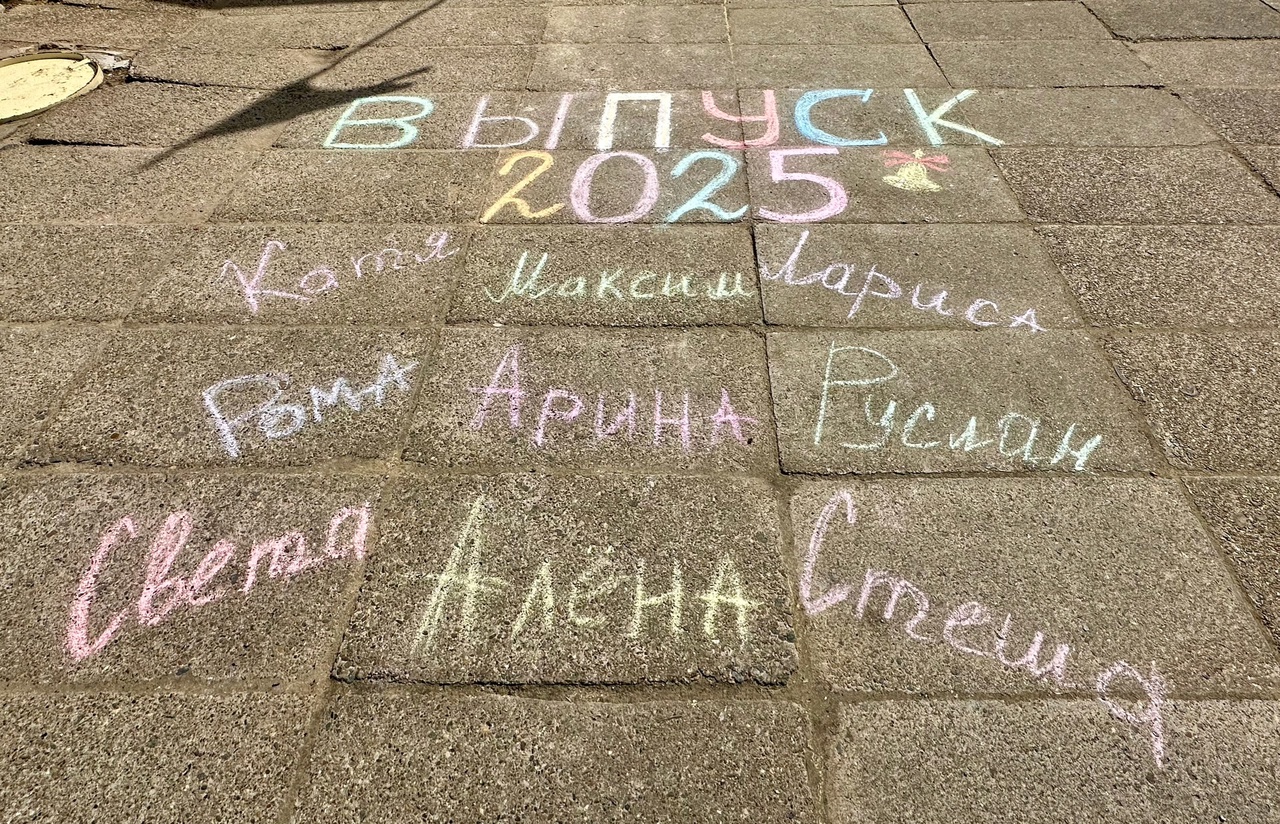 ВЫПУСК
2025
Катя Максим Лариса
Рома Арина Руслан
Света Алёна Стеша